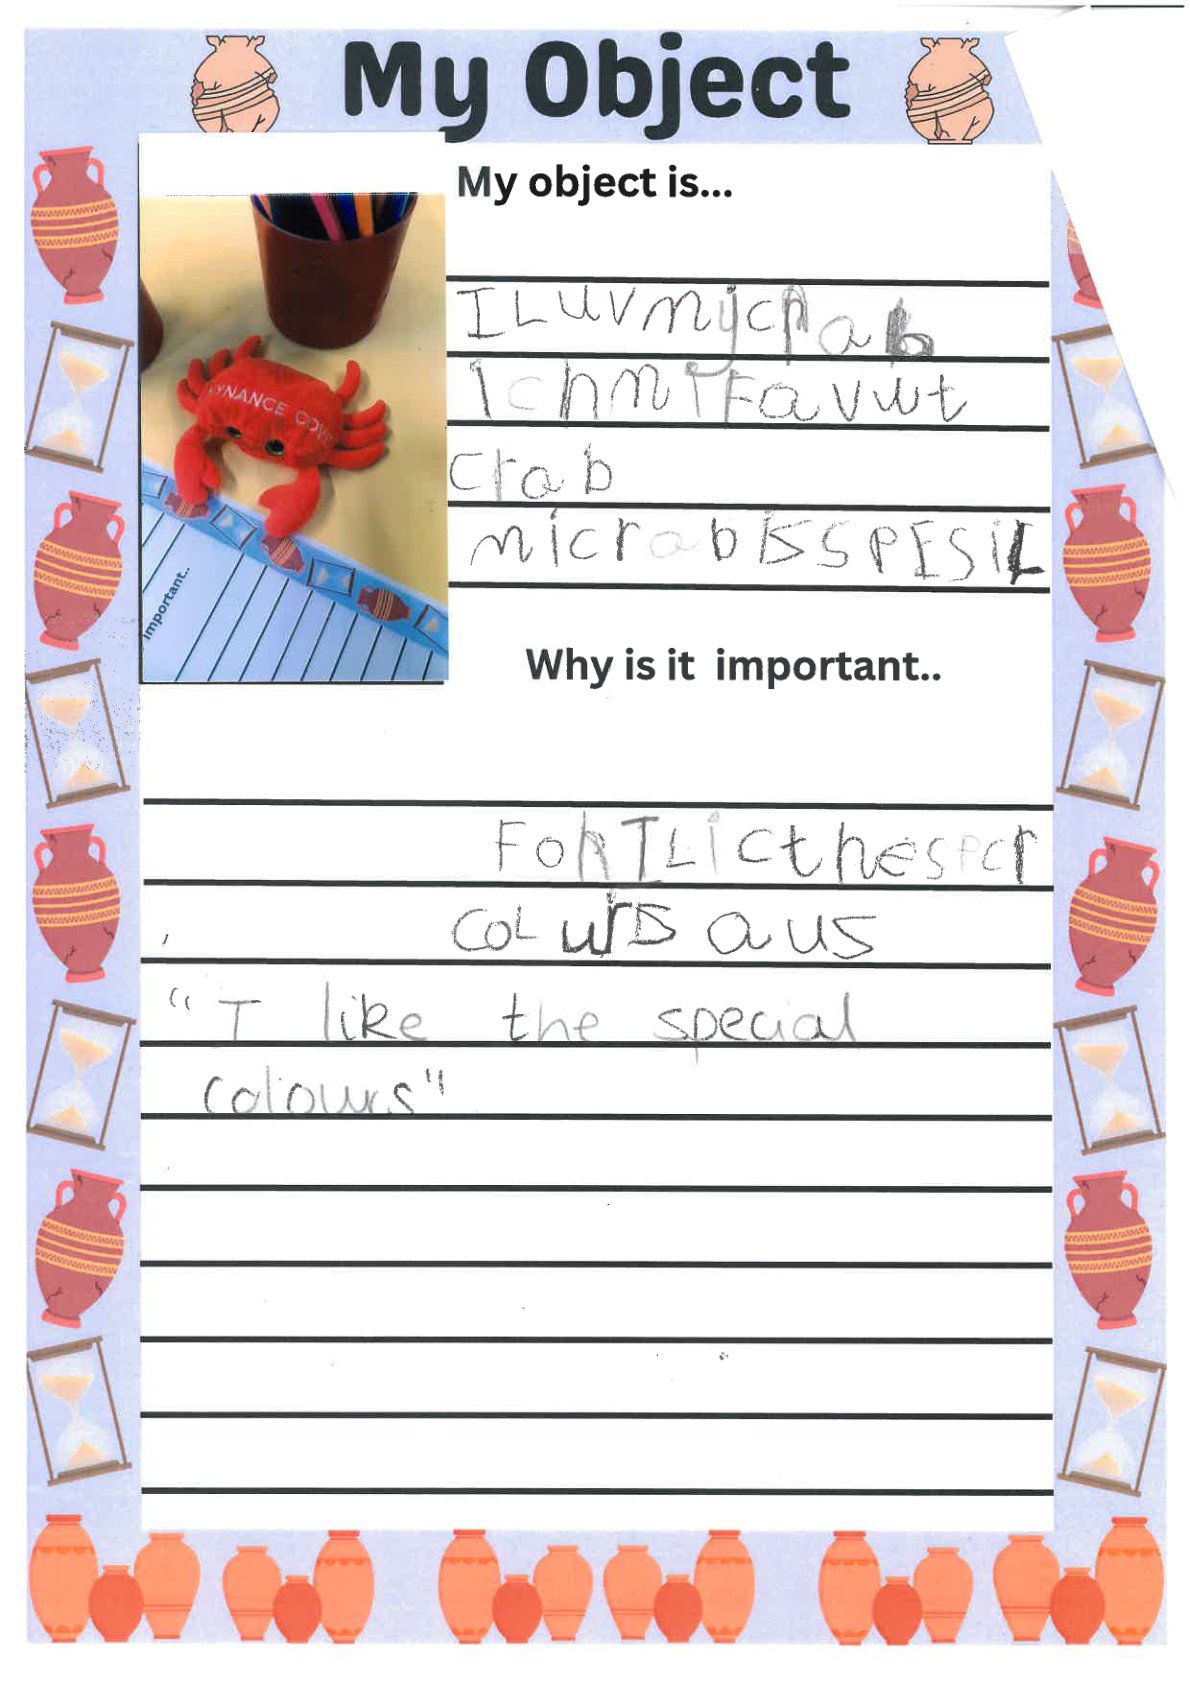 My Object
My object is...
YNANCE COVE
important..
ILUVmycrab
IchmIFavwt
crab
micrabISSPESIL
Why is it important..
FohILicthespcr
coLwrsaus
"I like the special
colours"